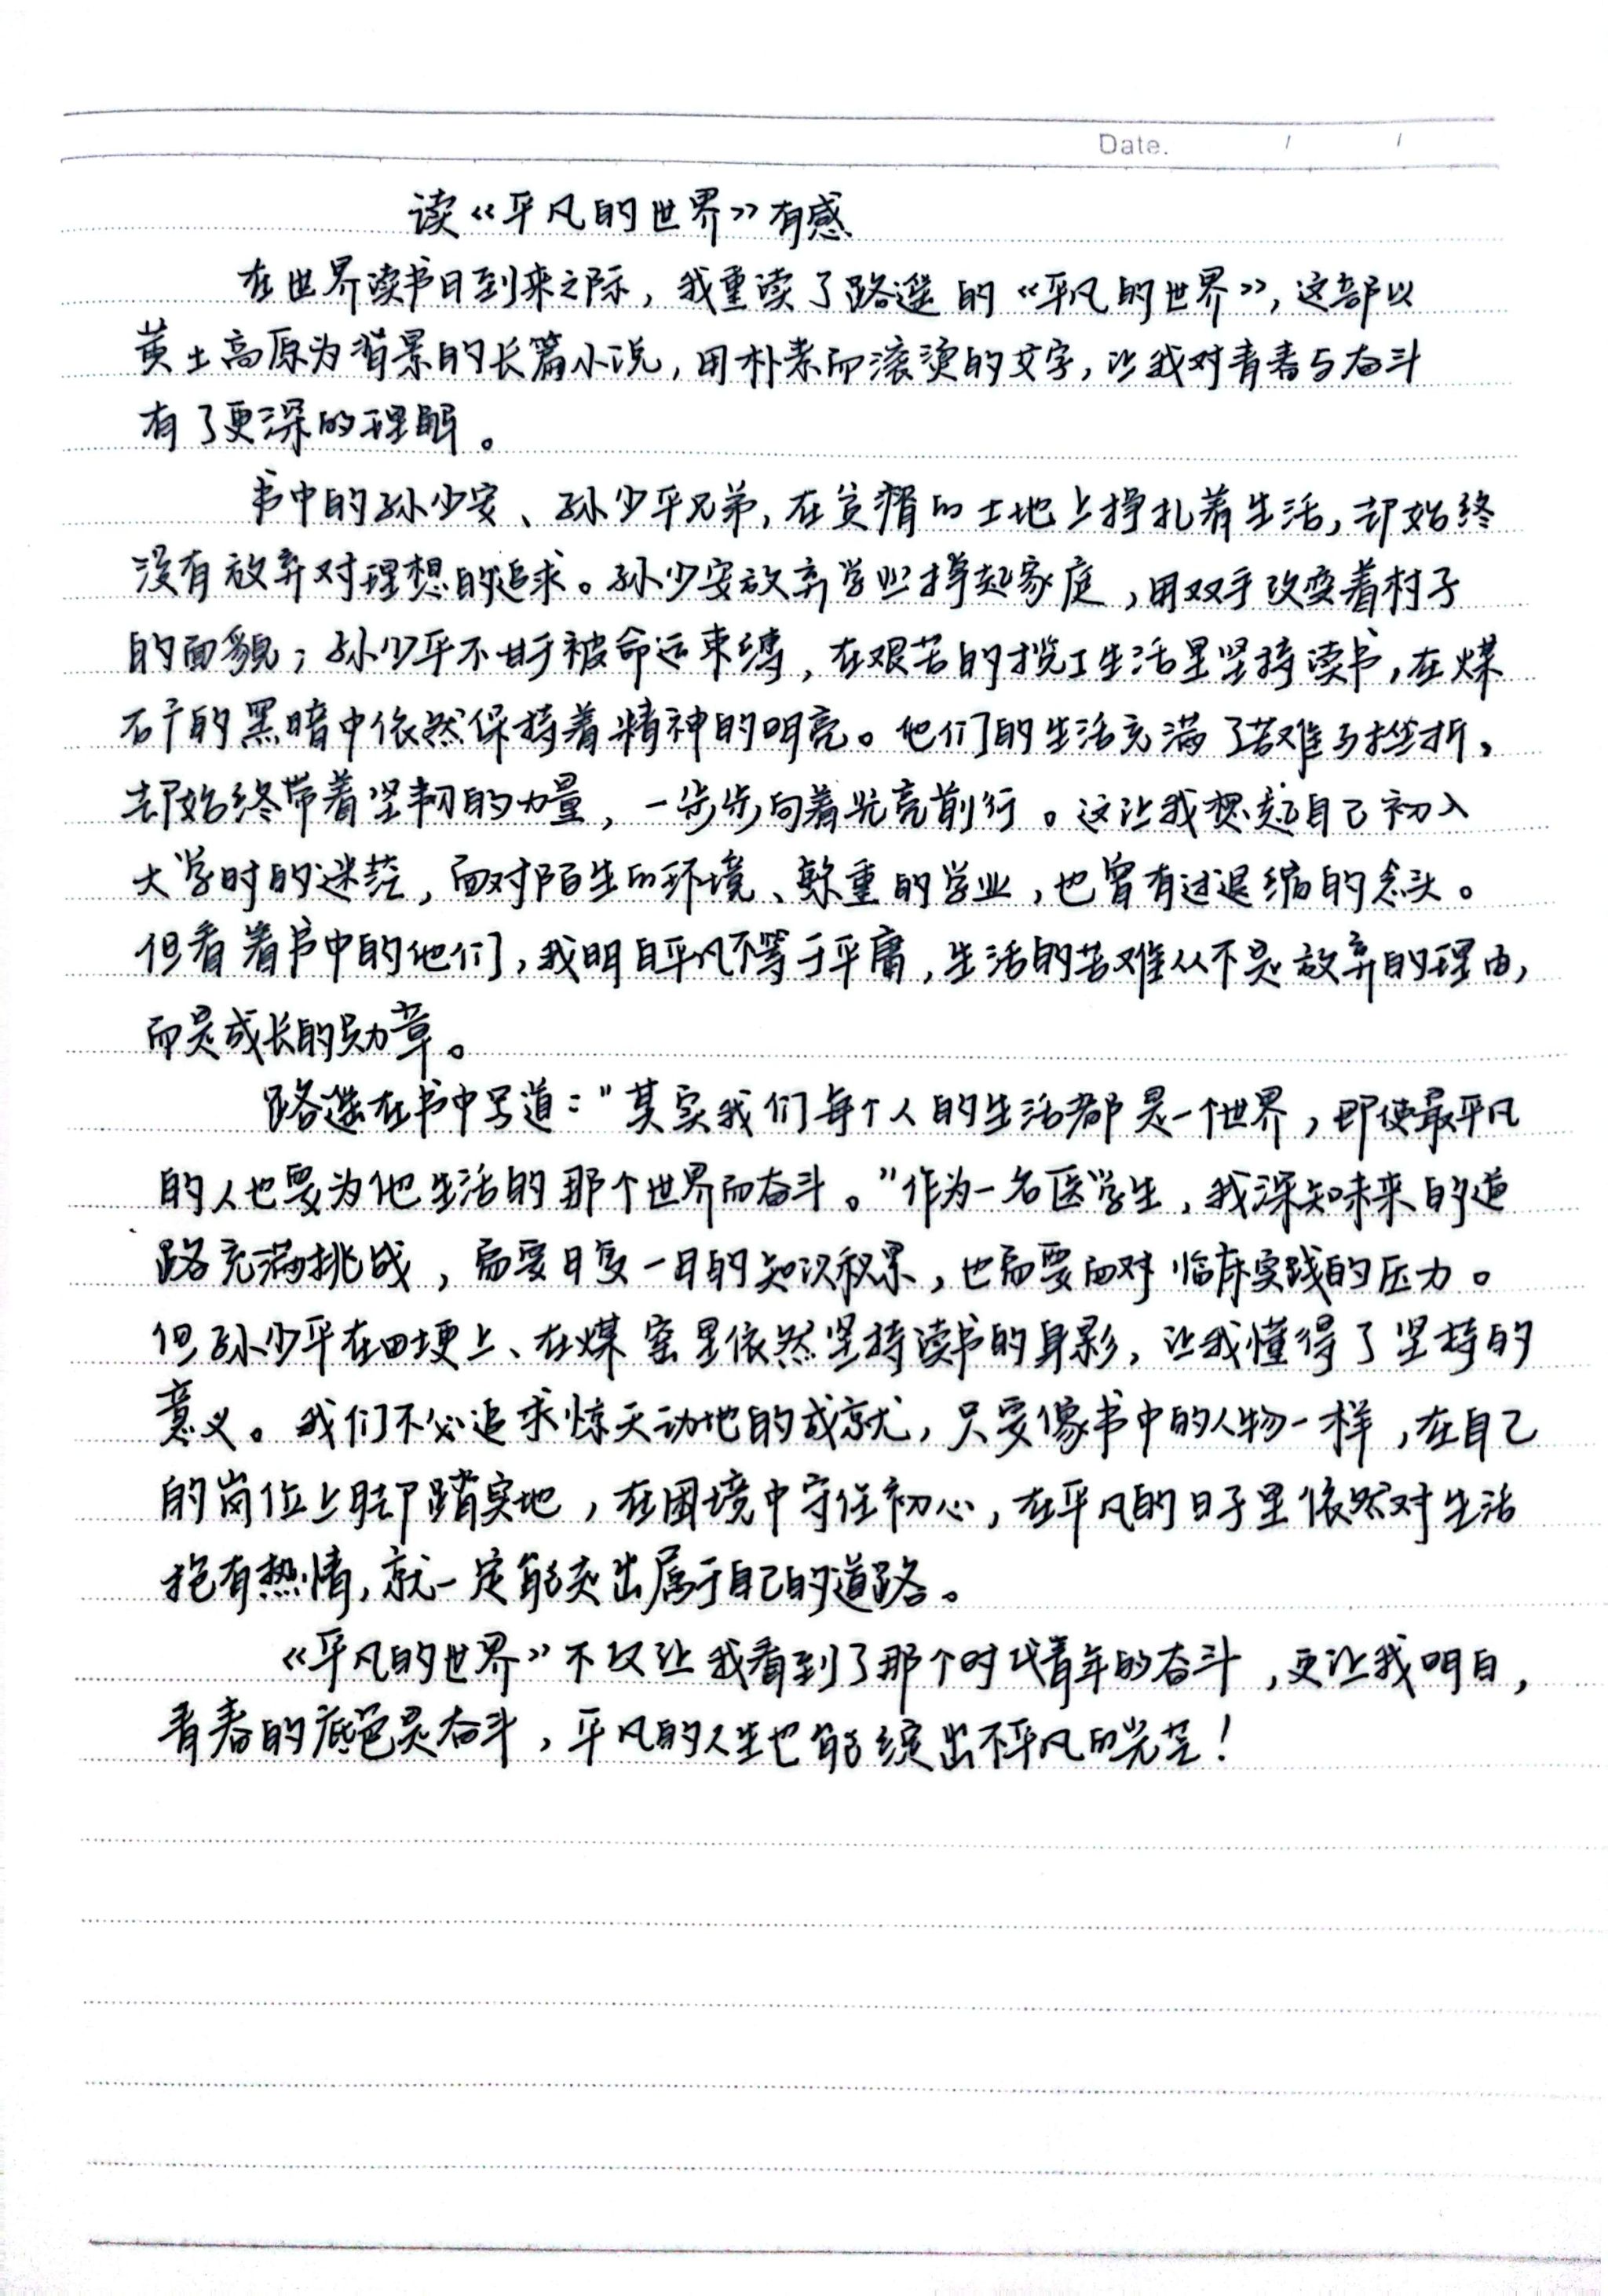 Date. / /
读《平凡的世界》有感
在世界读书日到来之际，我重读了路遥的《平凡的世界》，这部以
黄土高原为背景的长篇小说，用朴素而滚烫的文字，让我对青春与奋斗
有了更深的理解。
书中的孙少安、孙少平兄弟，在贫瘠的土地上挣扎着生活，却始终
没有放弃对理想的追求。孙少安放弃学业撑起家庭，用双手改变着村子
的面貌；孙少平不甘于被命运束缚，在艰苦的揽工生活里坚持读书，在煤
矿的黑暗中依然保持着精神的明亮。他们的生活充满了苦难与挫折，
却始终带着坚韧的力量，一步步向着光亮前行。这让我想起自己初入
大学时的迷茫，面对陌生的环境、繁重的学业，也曾有过退缩的念头。
但看着书中的他们，我明白平凡不等于平庸，生活的苦难从不是放弃的理由，
而是成长的勋章。
路遥在书中写道："其实我们每个人的生活都是一个世界，即使最平凡
的人也要为他生活的那个世界而奋斗。"作为一名医学生，我深知未来的道
路充满挑战，需要日复一日的知识积累，也需要面对临床实践的压力。
但孙少平在田埂上、在煤窑里依然坚持读书的身影，让我懂得了坚持的
意义。我们不必追求惊天动地的成就，只要像书中的人物一样，在自己
的岗位上脚踏实地，在困境中守住初心，在平凡的日子里依然对生活
抱有热情，就一定能走出属于自己的道路。
《平凡的世界》不仅让我看到了那个时代青年的奋斗，更让我明白，
青春的底色是奋斗，平凡的人生也能绽出不平凡的光芒！